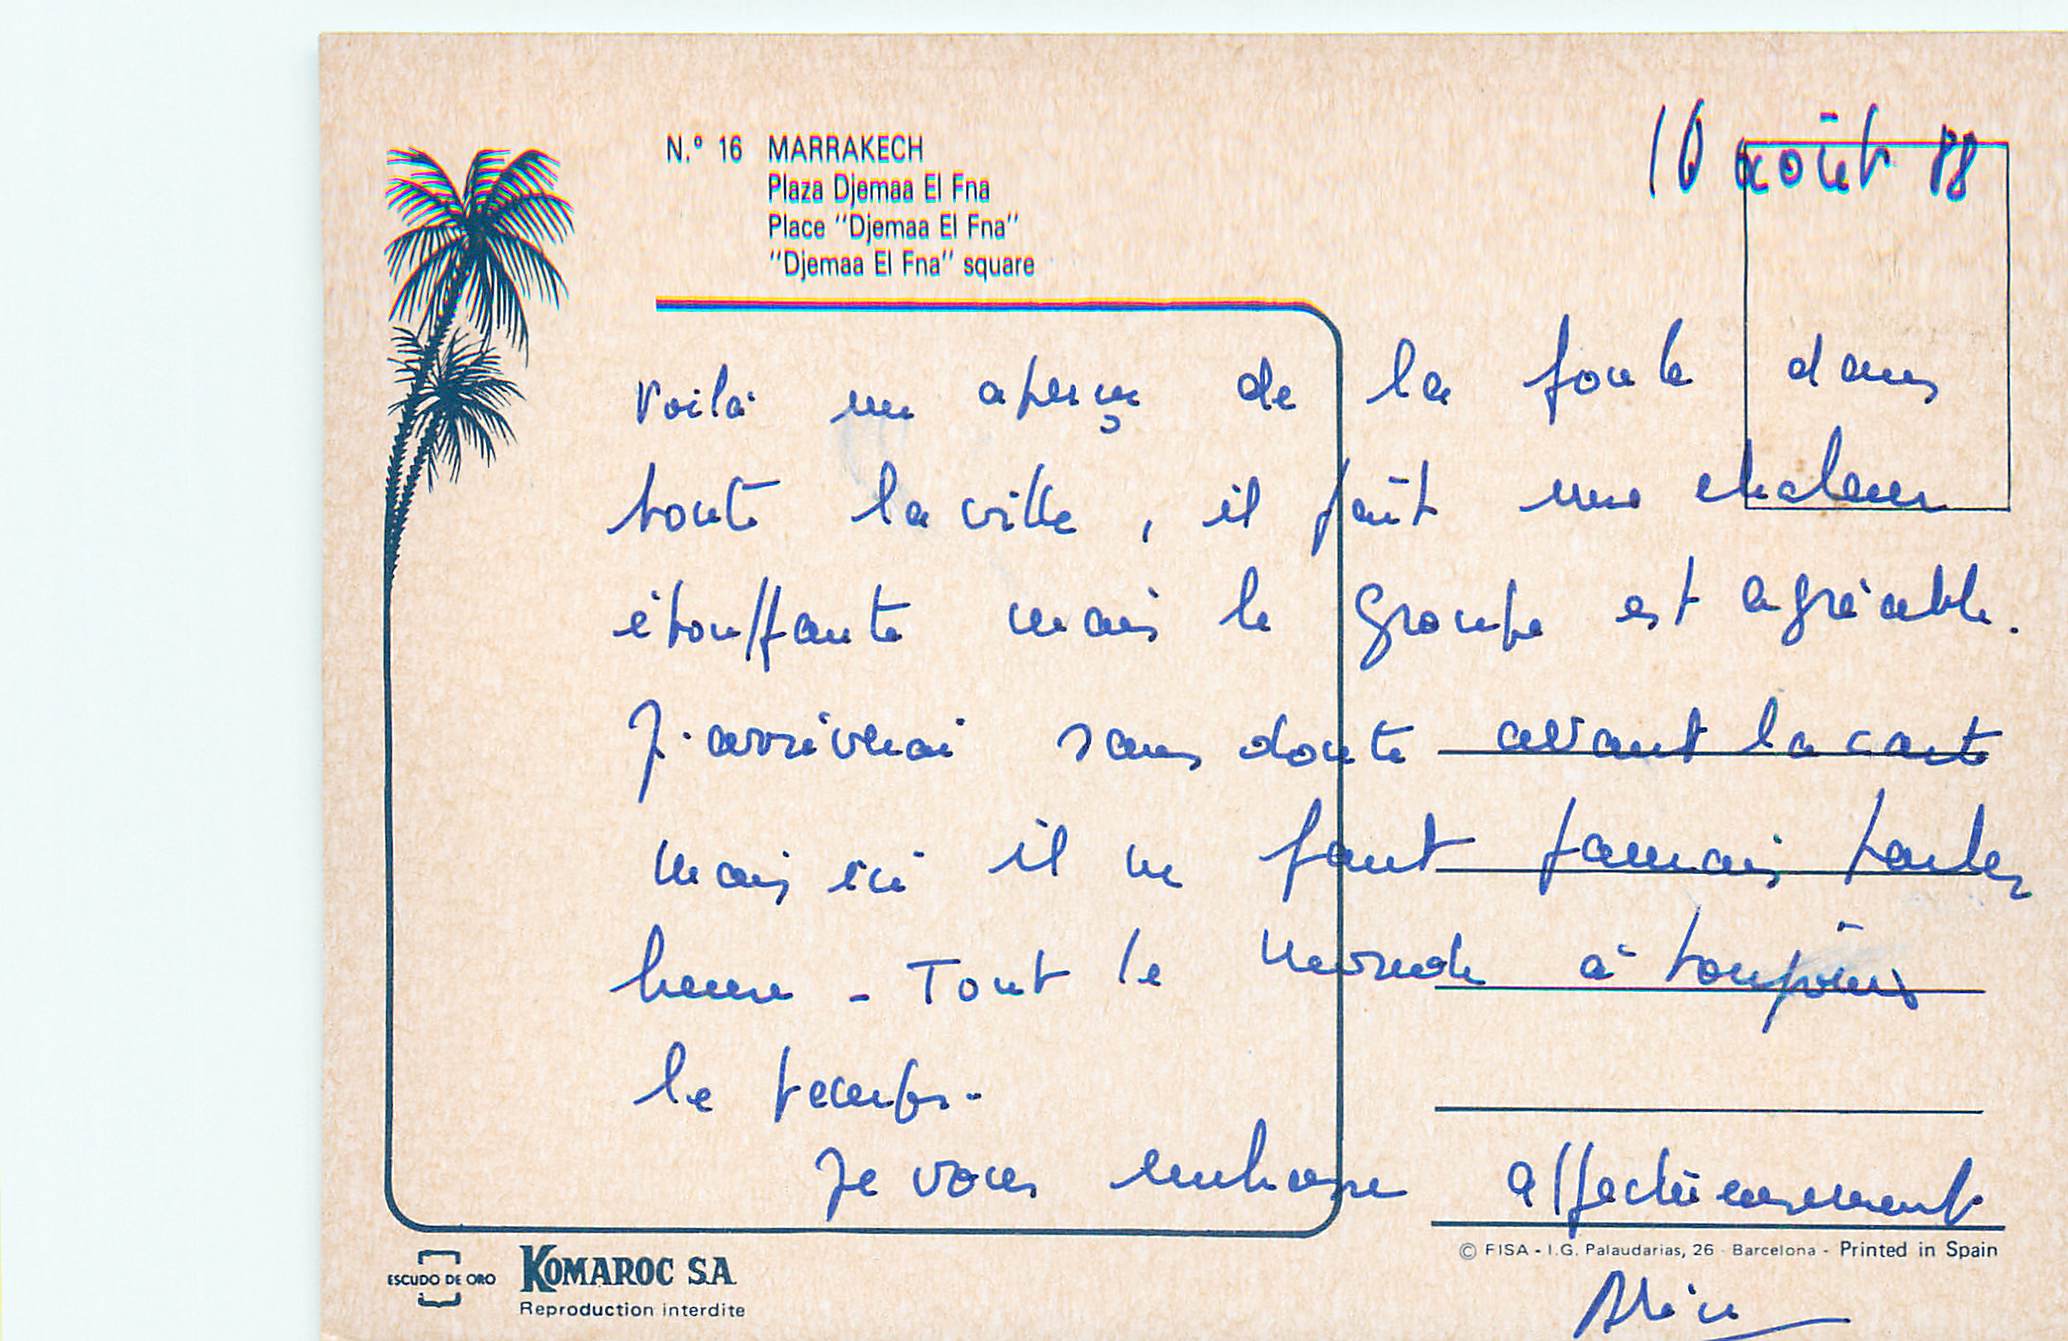 N.º 16 MARRAKECH
Plaza Djemaa El Fna
Place "Djemaa El Fna"
"Djemaa El Fna" square
10 août 88
Voilà un aperçu de la foule dans
toute la ville, il fait une chaleur
étouffante mais le groupe est agréable.
J'arriverai sans doute avant la carte
mais ici il ne faut jamais parler
heure - Tout le monde a toujours
le temps.
Je vous embrasse affectueusement
© FISA - I.G. Palaudarias, 26 - Barcelona - Printed in Spain
ESCUDO DE ORO
KOMAROC S.A.
Reproduction interdite